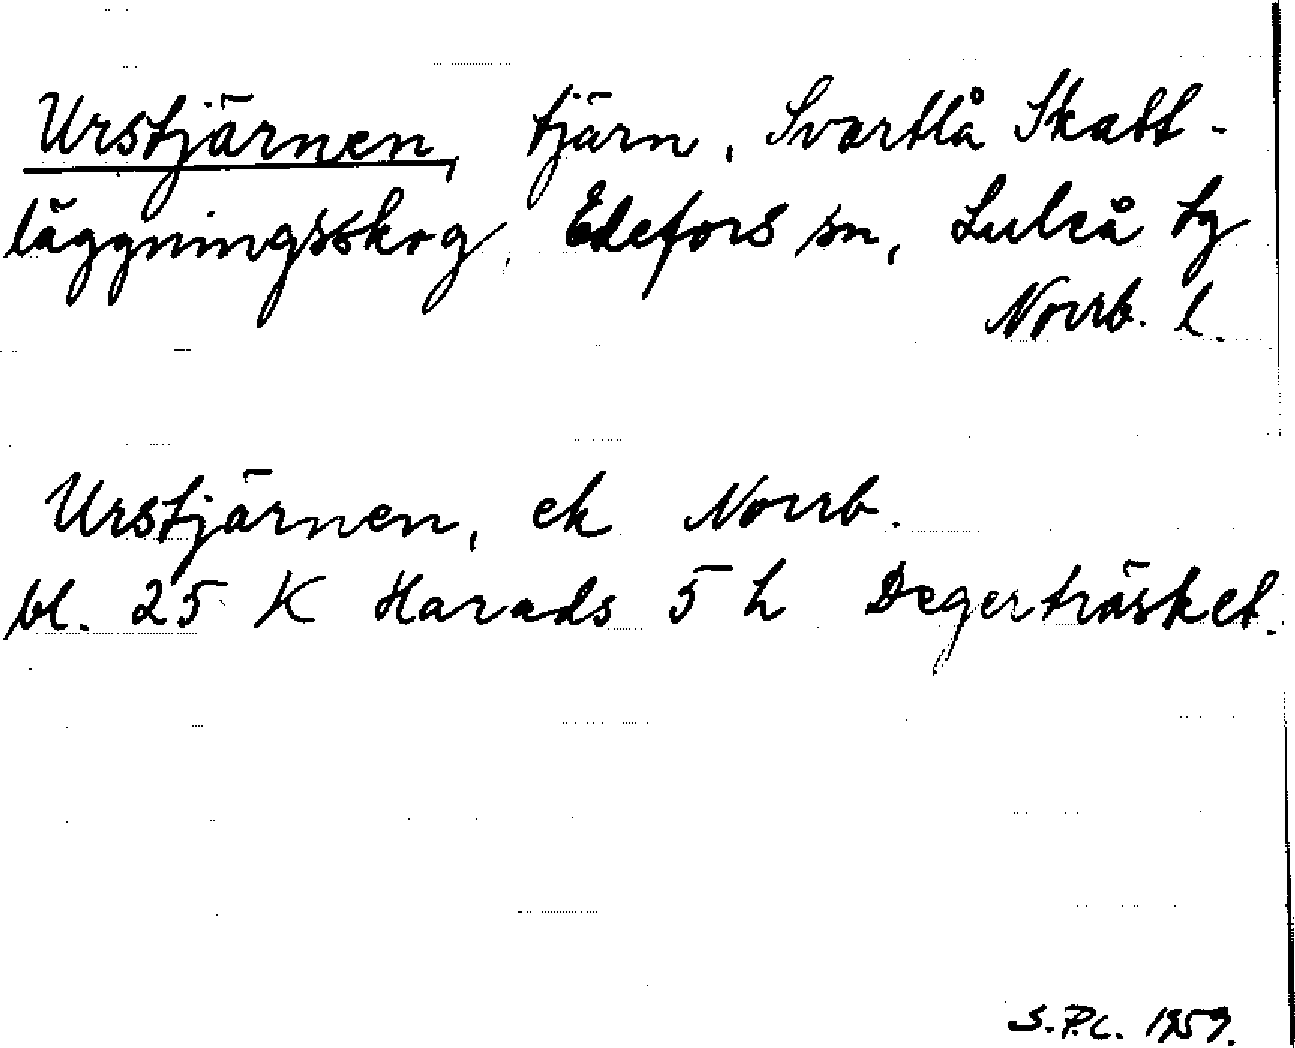 Urstjärnen, tjärn, Svartlå Skatt-
läggningsskog, Edefors sn, Luleå tg
Norrb. l.
Urstjärnen, ek Norrb.
bl. 25 K Harads 5 h Degerträsket.
S.P.C. 1959.